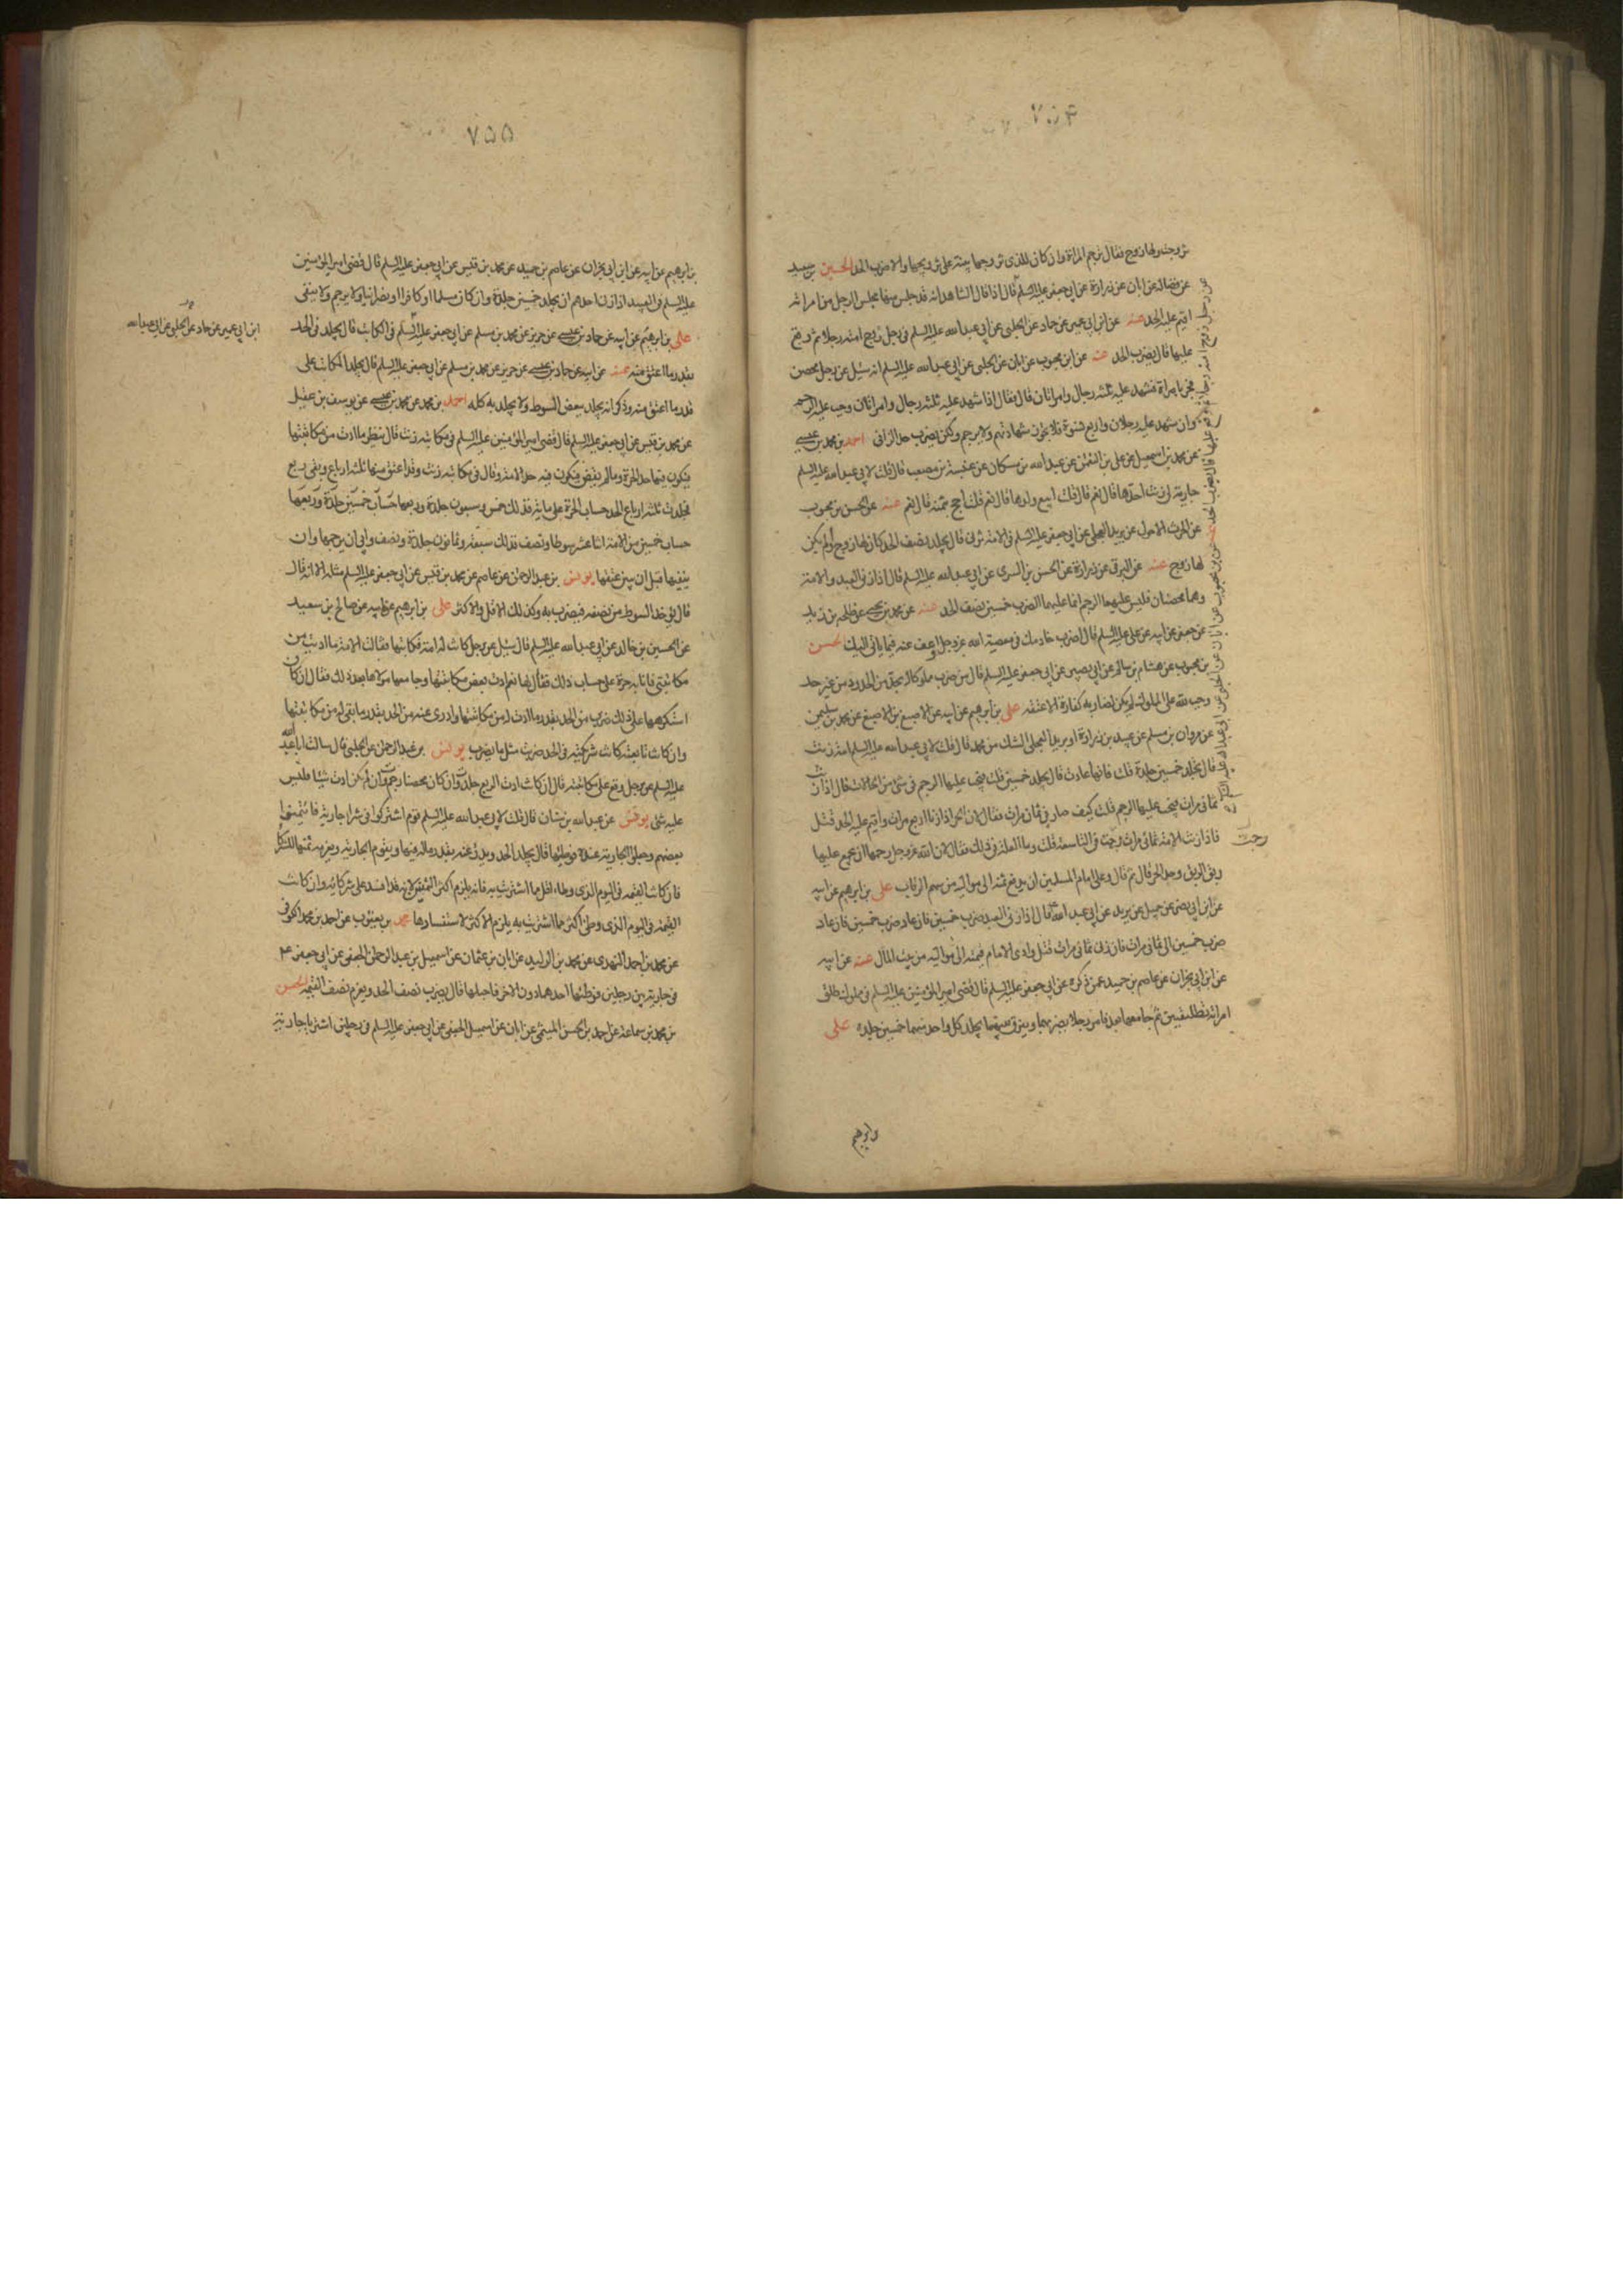 تزوجت ولها زوج فقال ترجم المراة وان كان للذى تزوجها بينة على تزويجها والا ضرب الحد الحسين بن سعيد
عن فضالة عن ابان عن زرارة عن ابي جعفر عليه السلم قال اذا قال الشاهد انه قد جلس منها مجلس الرجل من امراته
اقيم عليه الحد عنه عن ابن ابي عمير عن حماد عن الحلبي عن ابي عبد الله عليه السلم في رجل زوج امته رجلا ثم وقع
عليها قال يضرب الحد عنه عن ابن محبوب عن ابان عن الحلبي عن ابي عبد الله عليه السلم انه سئل عن رجل محصن
فجر بامراة فشهد عليه ثلثة رجال وامراتان قال فقال اذا شهد عليه ثلثة رجال وامراتان وجب عليه الرجم
وان شهد عليه رجلان واربع نسوة فلا تجوز شهادتهم ولا يرجم ولكن يضرب حد الزاني احمد بن محمد بن عيسى
عن محمد بن اسمعيل عن علي بن النعمن عن عبد الله بن مسكان عن عنبسة بن مصعب قال قلت لابي عبد الله عليه السلم
جارية لي زنت احدها قال نعم قال قلت ابيع ولدها قال نعم قلت احج بثمنه قال نعم عنه عن الحسن بن محبوب
عن الحرث الاحول عن بريد العجلي عن ابي جعفر عليه السلم في الامة تزني قال يجلد نصف الحد كان لها زوج او لم يكن
لها زوج عنه عن البرقي عن زرارة عن الحسن بن السري عن ابي عبد الله عليه السلم قال اذا زنى العبد والامة
وهما محصنان فليس عليهما الرجم انما عليهما الضرب خمسين نصف الحد عنه عن محمد بن يحيى عن طلحة بن زيد
عن جعفر عن ابيه عن علي عليه السلم قال اضرب خادمك في معصية الله عز وجل واعف عنه فيما ياتي اليك الحسن
بن محبوب عن هشام بن سالم عن ابي بصير عن ابي جعفر عليه السلم قال من ضرب مملوكا له بحد من الحدود من غير حد
وجب لله على المملوك لم يكن لضاربه كفارة الا عتقه علي بن ابرهيم عن ابيه عن الاصبغ بن الاصبغ عن محمد بن سليمن
عن مروان بن مسلم عن عبيد بن زرارة او بريد العجلي الشك من محمد قال قلت لابي عبد الله عليه السلم امة زنت
قال تجلد خمسين جلدة قلت فانها عادت قال تجلد خمسين قلت فيجب عليها الرجم في شئ من الحالات قال اذا زنت
ثماني مرات يجب عليها الرجم قلت كيف صار في ثمان مرات فقال لان الحر اذا زنا اربع مرات واقيم عليه الحد قتل
فاذا زنت الامة ثماني مرات رجمت في التاسعة قلت وما العلة في ذلك فقال لان الله عز وجل رحمها ان يجمع عليها
ربق الرق وحد الحر قال ثم قال وعلى امام المسلمين ان يدفع ثمنه الى مواليه من سهم الرقاب علي بن ابرهيم عن ابيه
عن ابن ابي نصر عن جميل عن بريد عن ابي عبد الله قال اذا زنى العبد ضرب خمسين فان عاد ضرب خمسين فان عاد
ضرب خمسين الى ثماني مرات فان زنى ثماني مرات قتل وادى الامام قيمته الى مواليه من بيت المال عنه عن ابيه
عن ابن ابي نجران عن عاصم بن حميد عمن ذكره عن ابي جعفر عليه السلم قال قضى امير المؤمنين عليه السلم في مملوك طلق
امراته تطليقتين ثم جامعها بعد فامر رجلا يضربهما ويفرق بينهما يجلد كل واحد منهما خمسين جلدة علي
رجمت
وابرهيم
٧٥٥
بن ابرهيم عن ابيه عن ابن ابي نجران عن عاصم بن حميد عن محمد بن قيس عن ابي جعفر عليه السلم قال قضى امير المؤمنين
عليه السلم في العبيد اذا زنا احدهم ان يجلد خمسين جلدة وان كان مسلما او كافرا او نصرانيا ولا يرجم ولا ينفى
علي بن ابرهيم عن ابيه عن حماد بن عيسى عن حريز عن محمد بن مسلم عن ابي جعفر عليه السلم في المكاتب قال يجلد في الحد
بقدر ما اعتق منه عنه عن ابيه عن حماد بن عيسى عن حريز عن محمد بن مسلم عن ابي جعفر عليه السلم قال يجلد المكاتب على
قدر ما اعتق منه وذكر انه يجلد ببعض السوط ولا يجلد به كله احمد بن محمد عن محمد بن عيسى عن يوسف بن عقيل
عن محمد بن قيس عن ابي جعفر عليه السلم قال قضى امير المؤمنين عليه السلم في مكاتبة زنت قال ينظر ما ادت من مكاتبتها
فيكون فيها حد الحرة وما لم يقض فيكون فيه حد الامة وقال في مكاتبة زنت وقد اعتق منها ثلثة ارباع وبقى ربع
فجلدت ثلثة ارباع الحد حساب الحرة على ماية فذلك خمس وسبعون جلدة وربعها حساب خمسين جلدة وربعها
حساب خمسين من الامة اثنا عشر سوطا ونصف فذلك سبعة وثمانون جلدة ونصف وابى ان يرجمها وان
ينفيها قبل ان يبين عتقها يونس بن عبد الرحمن عن عاصم عن محمد بن قيس عن ابي جعفر عليه السلم مثله الا انه قال
قال يؤخذ السوط من نصفه فيضرب به وكذلك الاقل والاكثر علي بن ابرهيم عن ابيه عن صالح بن سعيد
عن الحسين بن خالد عن ابي عبد الله عليه السلم قال سئل عن رجل كانت له امة فكاتبها فقالت الامة ما اديت من
مكاتبتي فانا به حرة على حساب ذلك فقال لها نعم فادت بعض مكاتبتها وجامعها مولاها بعد ذلك فقال ان كان
استكرهها على ذلك ضرب من الحد بقدر ما ادت له من مكاتبتها وادرئ عنه من الحد بقدر ما بقى له من مكاتبتها
وان كانت تابعته كانت شريكته في الحد ضربت مثل ما يضرب يونس بن عبد الرحمن عن الحلبي قال سالت ابا عبد الله
عليه السلم عن رجل وقع على مكاتبته قال ان كانت ادت الربع جلد وان كان محصنا رجم وان لم تكن ادت شيئا فليس
عليه شئ يونس عن عبد الله بن سنان قال قلت لابي عبد الله عليه السلم قوم اشتركوا في شراء جارية فائتمنوا
بعضهم وجعلوا الجارية عنده فوطئها قال يجلد الحد ويدرأ عنه بقدر ماله فيها وتقوم الجارية ويغرم ثمنها للشركا
فان كانت القيمة في اليوم الذى وطاء اقل مما اشتريت به فانه يلزم اكثر الثمن لانه قد افسد على شركائه وان كانت
القيمة في اليوم الذى وطئ اكثر مما اشتريت به يلزم الاكثر لاستفسادها محمد بن يعقوب عن احمد بن محمد الكوفى
عن محمد بن احمد النهدى عن محمد بن الوليد عن ابان بن عثمان عن اسمعيل بن عبد الرحمن الجعفي عن ابي جعفر ع
في جارية بين رجلين فوطئها احدهما دون الاخر فاحبلها قال يضرب نصف الحد ويغرم نصف القيمة الحسن
بن محمد بن سماعة عن احمد بن الحسن الميثمي عن ابان عن اسمعيل الجعفي عن ابي جعفر عليه السلم في رجلين اشتريا جارية
ابن ابي عمير عن حماد عن الحلبي عن ابي عبد الله